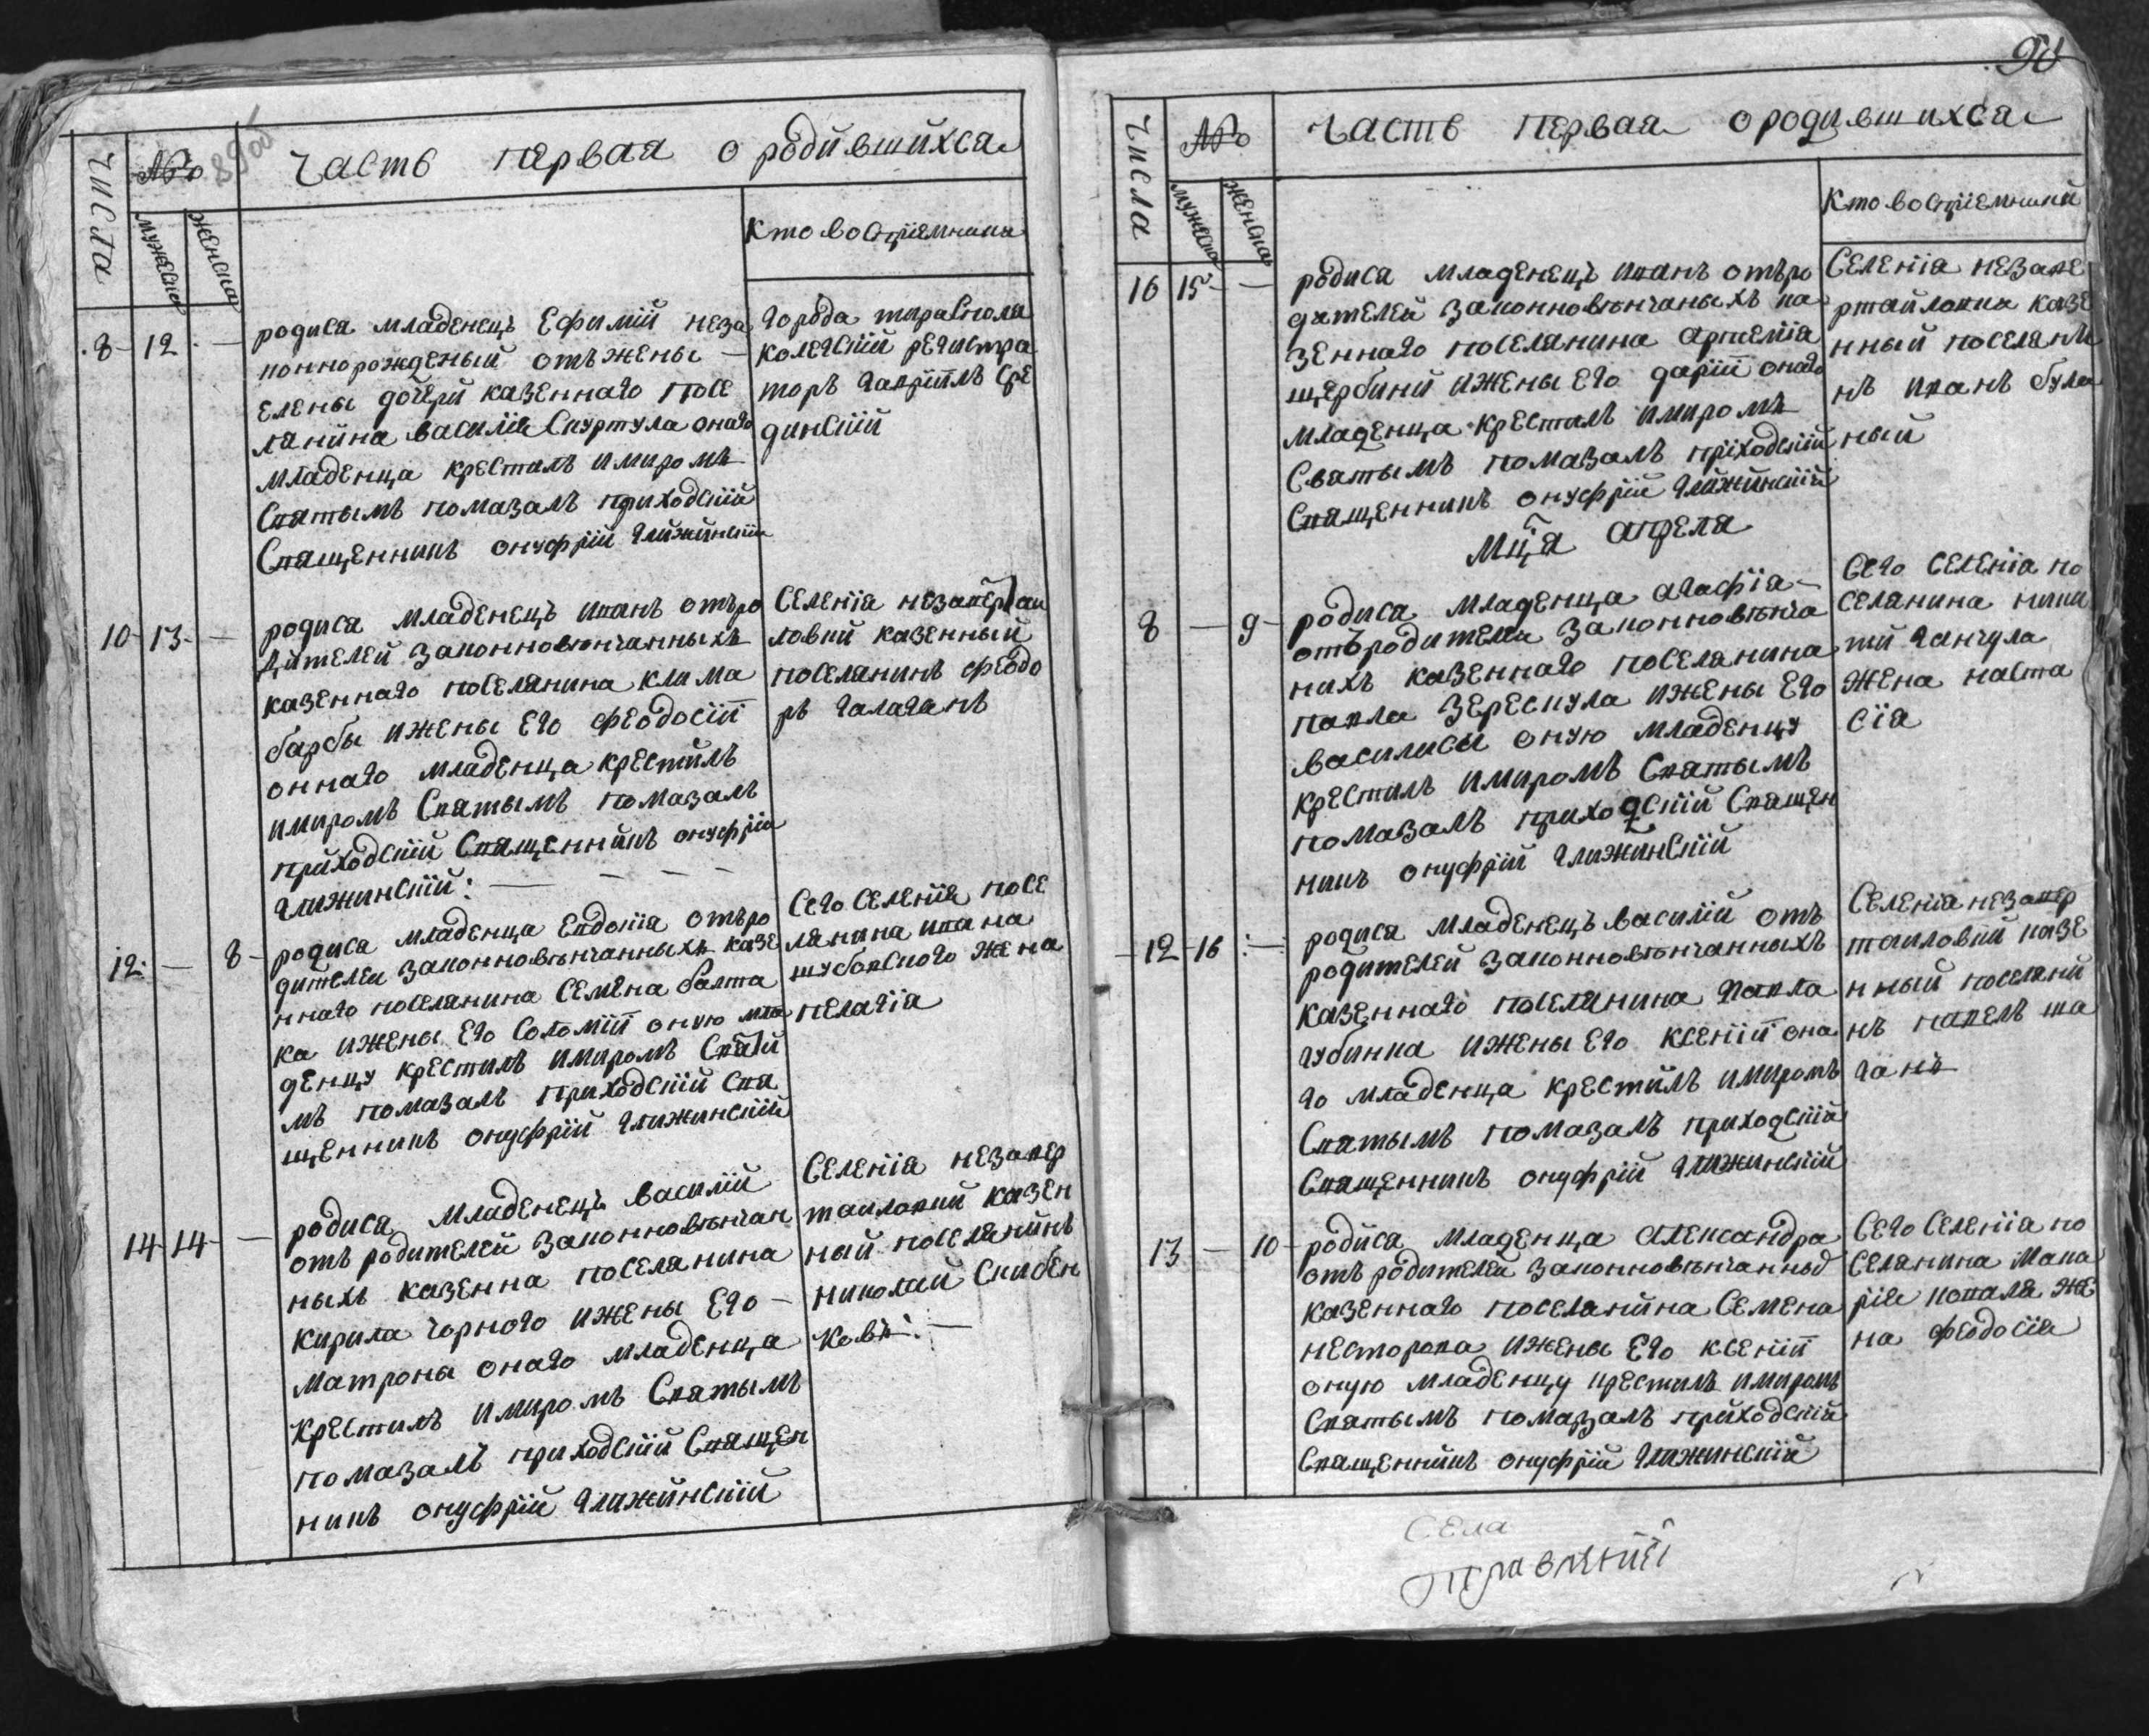 89об
Числа
№
мужеска
женска
Часть первая о родившихся
Кто восприемники
8 12
родися младенецъ Ефимий неза
коннорожденый отъ жены
Елены дочери казеннаго посе
лянина василія Скуртула онаго
младенца крестилъ и миромъ
Святымъ помазалъ приходскій
Священникъ онуфрій Глижинскій
города тираспола
колежскій регистра
торъ гавріилъ Сре
динскій
10 13
родися младенецъ иванъ отъ ро
дителей законновѣнчанныхъ
казеннаго поселянина клима
барбы и жены Его феодосіи
оннаго младенца крестилъ
и миромъ Святымъ помазалъ
приходскій Священникъ онуфрій
Глижинскій:
Селенія незавертаи
ловки казенный
поселянинъ феодо
ръ Галаганъ
12 8
родися младенца Евдокіа отъ ро
дителей законновѣнчанныхъ казе
ннаго поселянина Семена болта
ка и жены Его Соломіи оную мла
денцу крестилъ и миромъ Святы
мъ помазалъ приходскій Свя
щенникъ онуфрій Глижинскій
Сего Селенія посе
лянина ивана
шубовского жена
пелагіа
14 14
родися младенецъ василій
отъ родителей законновѣнчан
ныхъ казенна поселянина
кирила чорного и жены Его
Матроны онаго младенца
крестилъ и миромъ Святымъ
помазалъ приходскій Священ
никъ онуфрій Глижинскій
Селенія незавер
таиловки казен
ный поселянинъ
николай Скибен
ковъ:
90
Числа
№
мужеска
женска
Часть первая о родившихся
Кто восприемники
16 15
родися младенецъ иванъ отъ ро
дителей законновѣнчаныхъ ка
зеннаго поселянина Артемія
щербины и жены Его дарій онаго
младенца крестилъ и миромъ
Святымъ помазалъ приходскій
Священникъ онуфрій Глижинскій
Селенія незаве
ртайловки казе
нный поселяни
нъ иванъ була
ный
Мца апреля
8 9
родися младенца агафіа
отъ родителей законновѣнча
нихъ казеннаго поселянина
павла Зерескула и жены Его
василисы оную младенцу
крестилъ и миромъ Святымъ
помазалъ приходскій Священ
никъ онуфрій Глижинскій
Сего Селенія по
селянина ники
ти Ганчула
жена наста
сіа
12 16
родися младенецъ василій отъ
родителей законновѣнчанныхъ
казеннаго поселянина павла
губинка и жены Его ксеніи она
го младенца крестилъ и миромъ
Святымъ помазалъ приходскій
Священникъ онуфрій Глижинскій
Селенія незавер
таиловки казе
нный поселяни
нъ павелъ ца
ганъ
13 10
родися младенца Александра
отъ родителей законновѣнчанныд
казеннаго поселянина Семена
несторова и жены Его ксеніи
оную младенцу крестилъ и миромъ
Святымъ помазалъ приходскій
Священникъ онуфрій Глижинскій
Сего Селенія по
селянина Мака
рія коваля же
на феодосіа
Села